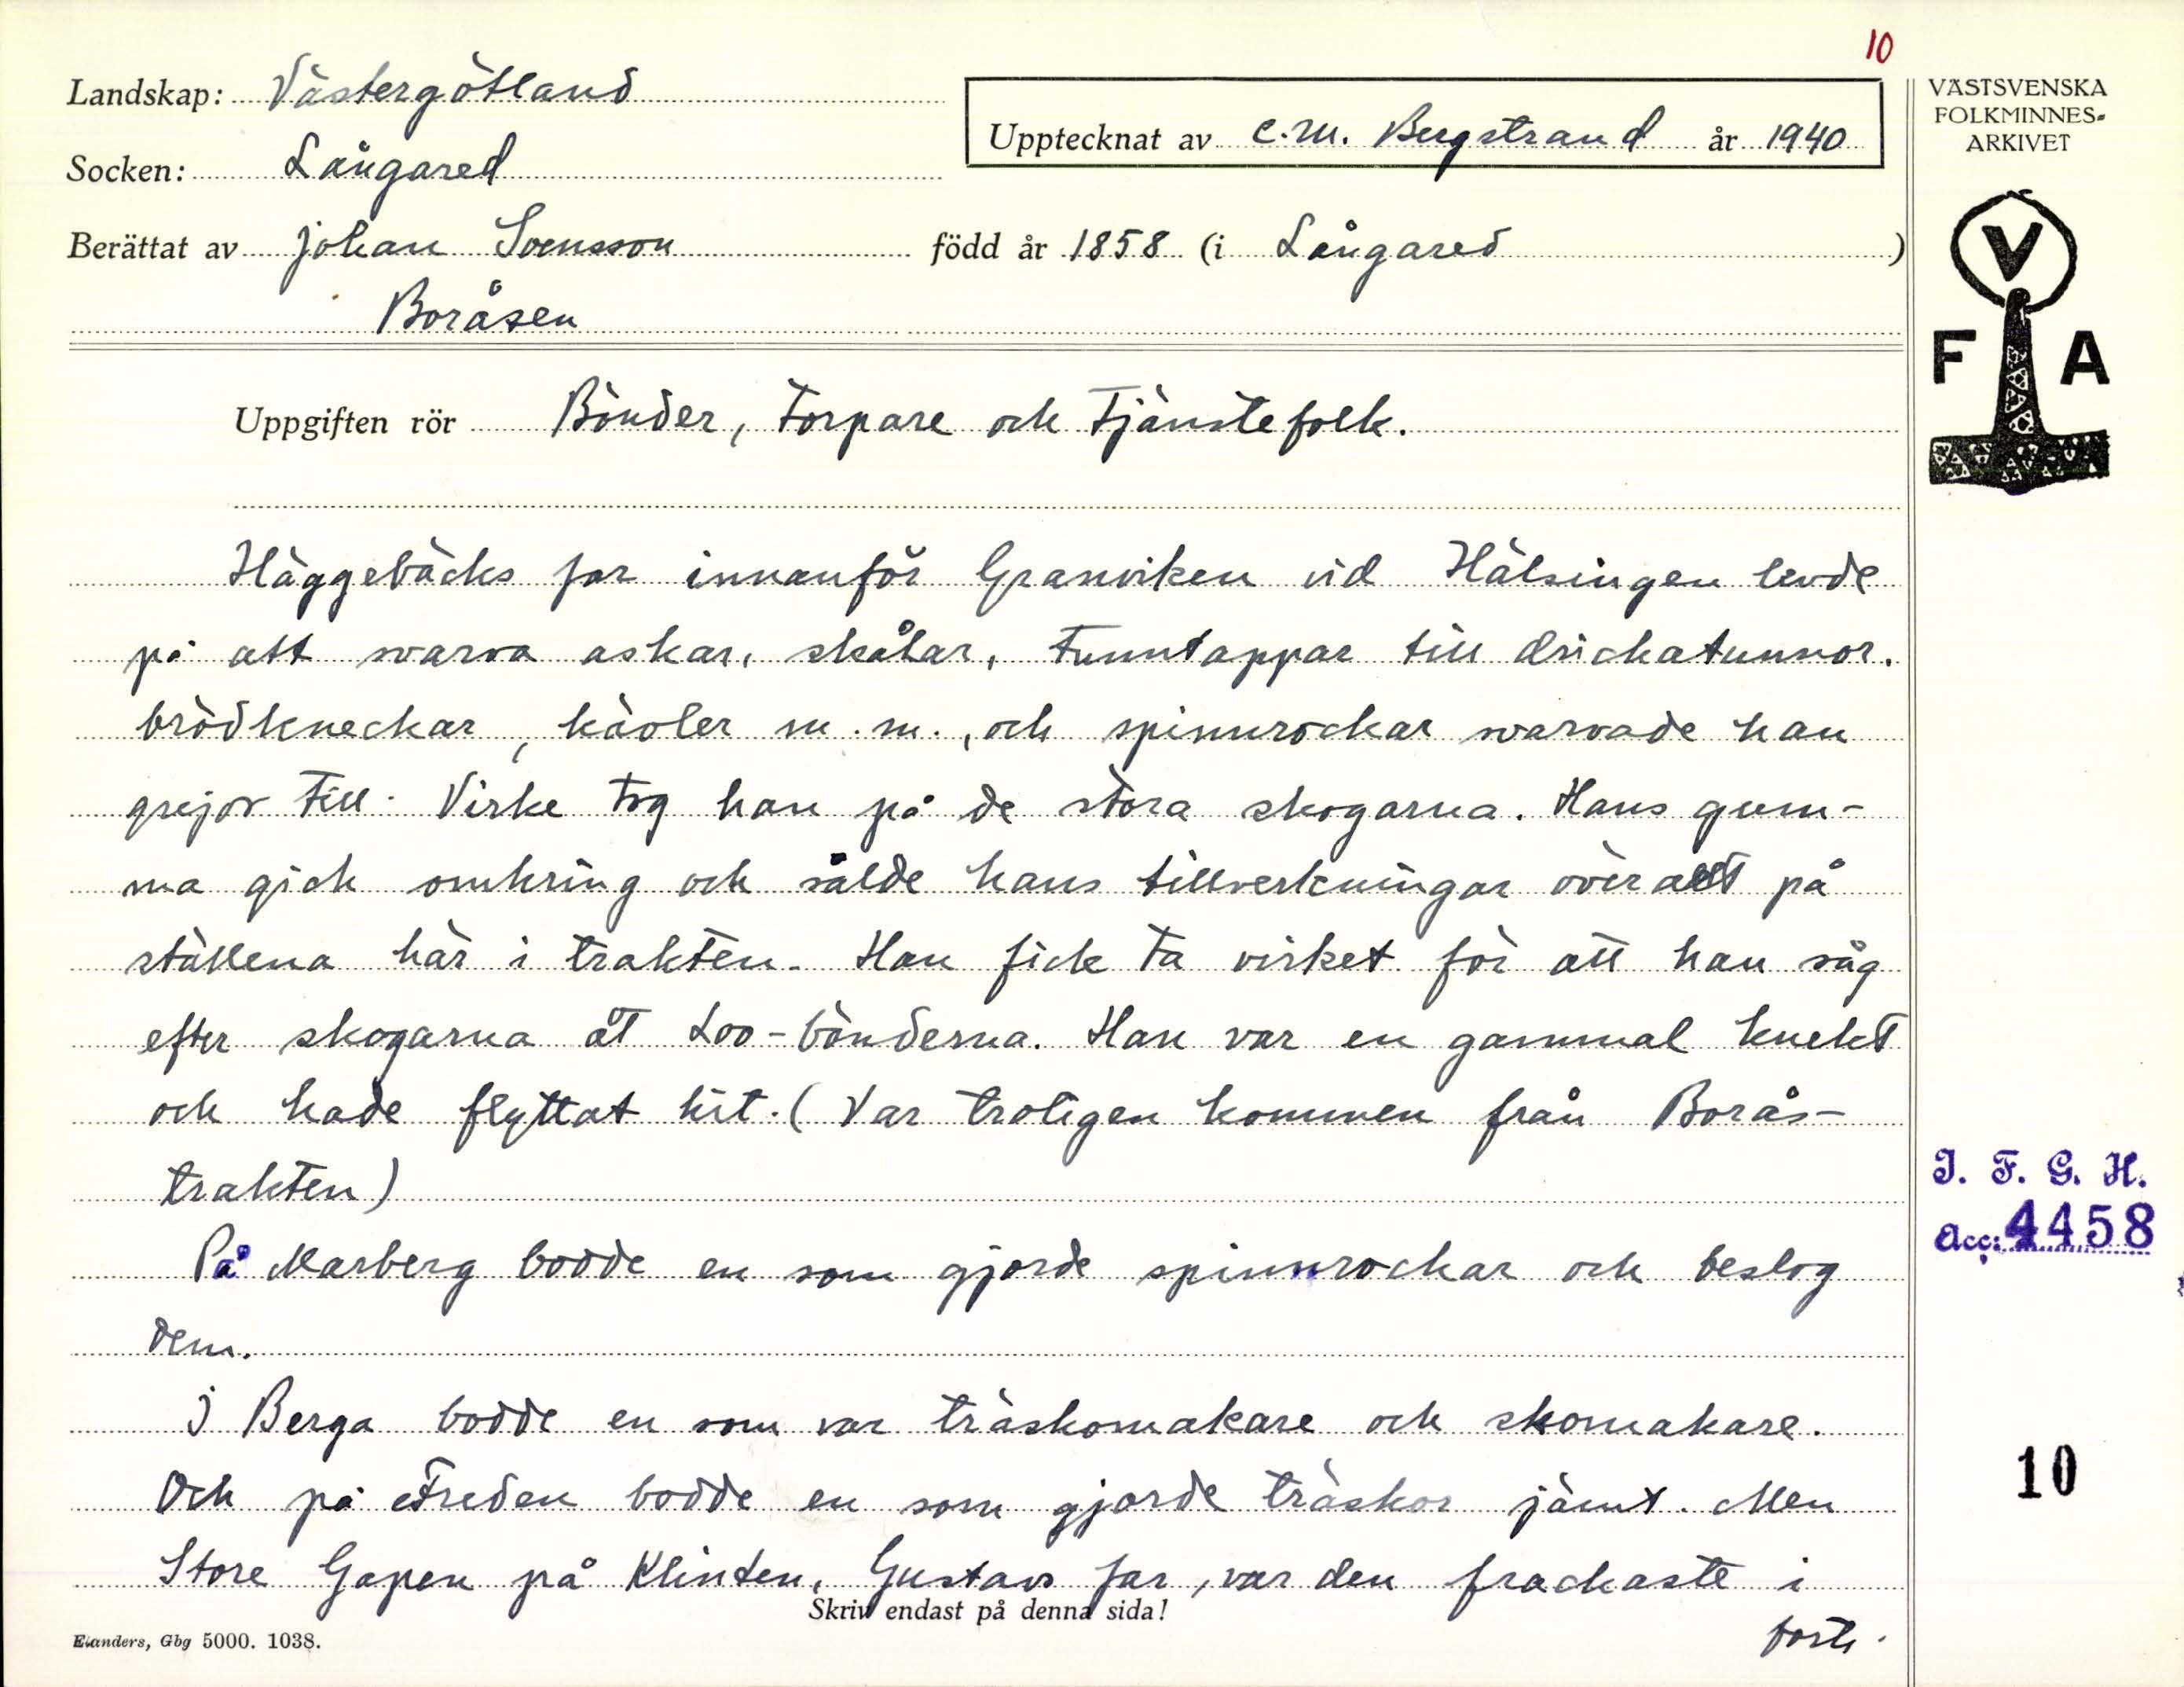 10
Landskap: Västergötland
Upptecknat av C.M. Bergstrand år 1940
VÄSTSVENSKA
FOLKMINNES-
ARKIVET
Socken: Långared
Berättat av Johan Svensson född år 1858 (i Långared)
Boråsen
V
F A
Uppgiften rör Bönder, torpare och tjänstefolk.
Häggebäcks far innanför Granviken vid Hälsingen levde
på att svarva askar, skålar, tunntappar till drickatunnor.
brödkneckar, kävler m.m., och spinnrockar svarvade han
grejor till. Virke tog han på de stora skogarna. Hans gum-
ma gick omkring och sålde hans tillverkningar överallt på
ställena här i trakten. Han fick ta virket för att han såg
efter skogarna åt Loo-bönderna. Han var en gammal knekt
och hade flyttat hit. (Var troligen kommen från Borås-
trakten)
På Marberg bodde en som gjorde spinnrockar och beslog
dem.
I Berga bodde en som var träskomakare och skomakare.
Och på Freden bodde en som gjorde träskor jämt. Men
Store Gapen på Klinten, Gustavs far, var den frackaste i
Skriv endast på denna sida!
forts.
Elanders, Gbg 5000. 1038.
I. F. G. H.
Acc: 4458
10